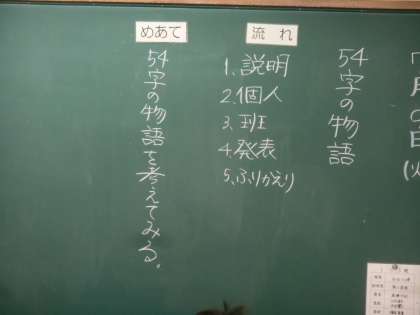 54字の物語
流れ
1、説明
2、個人
3、班
4、発表
5、ふりかえり
めあて
54字の物語を考えてみる。